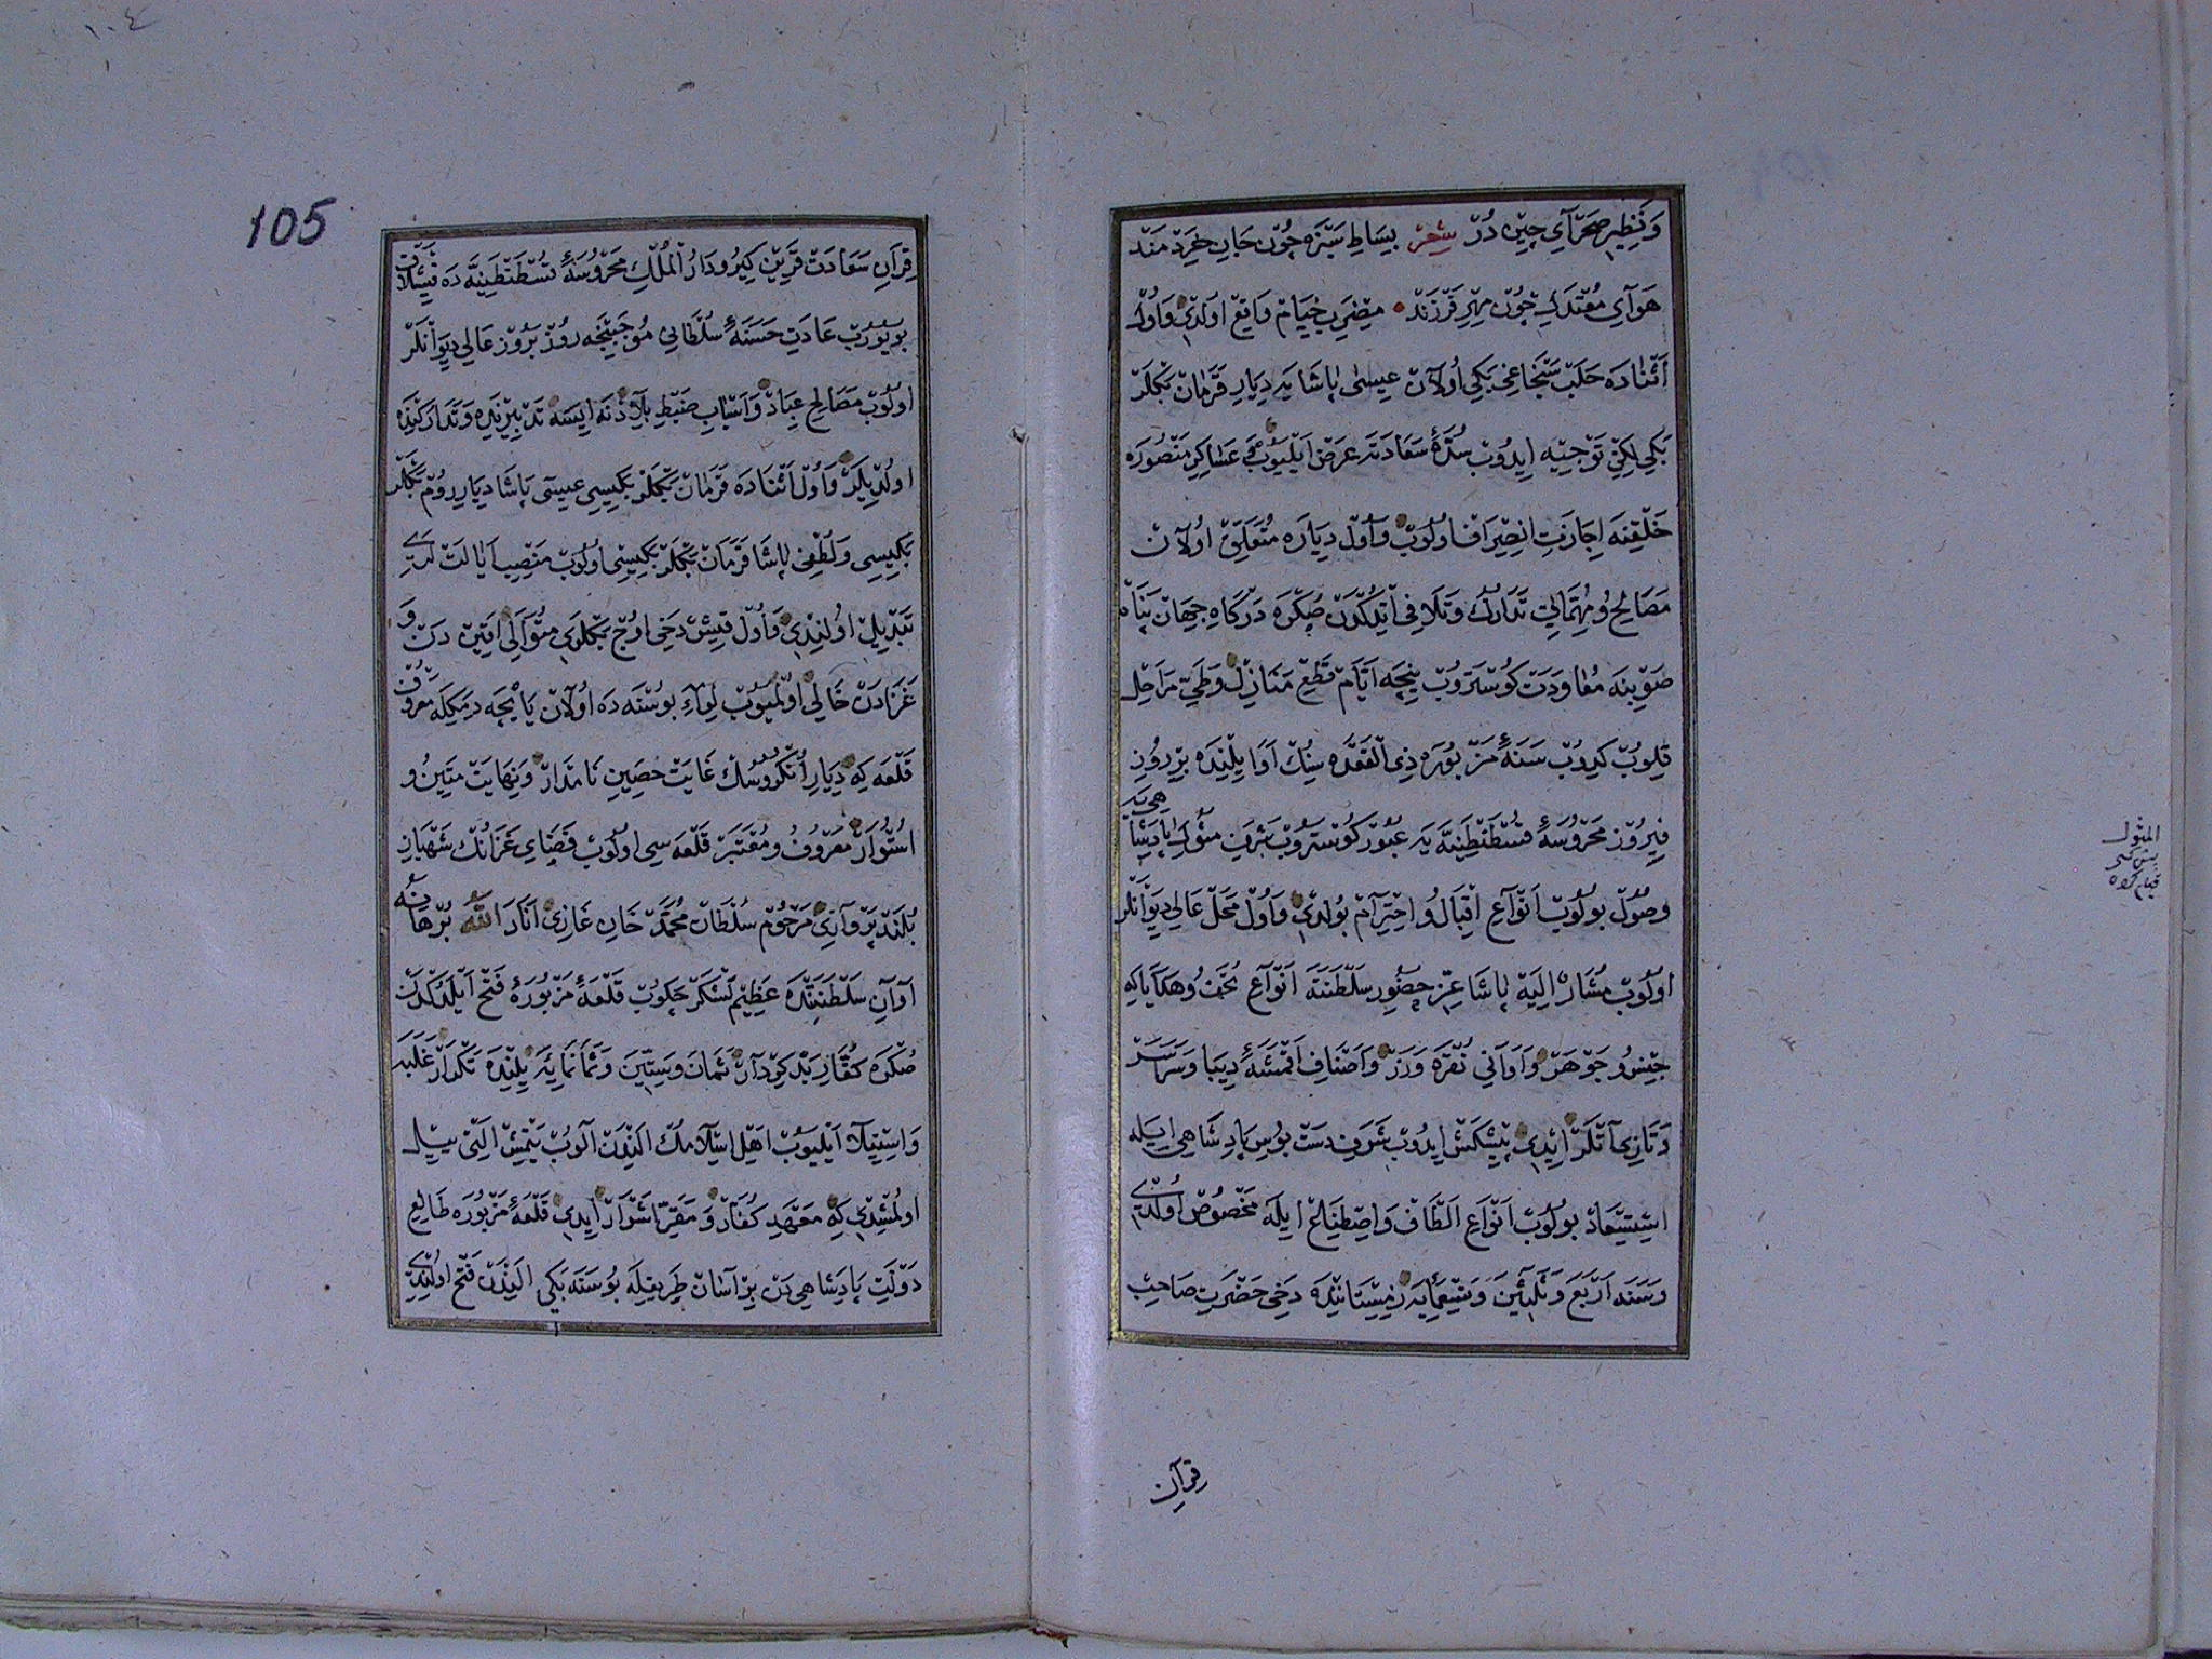 وَنَظِيرِ صَحْرَآيِ چِينْ دُرْ شِعْرْ بِسَاطِ سَبْزَهْ چُونْ جَانِ خِرَدْمَنْدْ
هَوَآيِ مُعْتَدِلْ چُونْ مِهْرِ فَرْزَنْدْ مِضْرَبِ خِيَامْ وَاقِعْ اُولْدِي وَاُولْ
اَثْنَادَه حَلَبْ سَنْجَاغِي بَكِي اُولَانْ عِيسٰى پَاشَايَه دِيَارِ قَرَمَانْ بَكْلَرْ
بَكِي لِكِنْ تَوْجِيهْ اِيدُوبْ سُدَّۀ سَعَادَتَه عَرْضْ اَيْلَيُوبْ عَسَاكِرِ مَنْصُورَه
خَلْقِنَه اِجَازَتِ انْصِرَافْ اولُوبْ وَاُولْ دِيَارَه مُتَعَلِّقْ اُولَانْ
مَصَالِحْ وُ مُهِمَّاتِي تَدَارُكْ وَتَلَافِي اَيْتدُكْدَنْ صُكْرَه دَرْكَاهِ جِهَانْ پَنَاه
صَوْبِنَه مُعَاوَدَتْ كُوسْتَرُوبْ نِيجَه اَيَّامْ قَطْعِ مَنَازِلْ وَطَيِّ مَرَاحِلْ
قِلُوبْ كَلُوبْ سَنَۀ مَزْبُورَه ذِي الْقَعْدَه سِنُكْ اَوَايِلِنْدَه بِرْ رُوزِ
فِيرُوزْ مَحْرُوسَۀ قُسْطَنْطِنِيَّه يَه عُبُورْ كُوسْتَرُوبْ شَرَفِ مُثُولِ پَادِشَاهِي يَه
وصُولْ بولُوبْ اَنْوَاعِ اِقْبَالْ وُ احْتِرَامْ بُولدِي وَاُولْ مَحَلْ عَالِي دِيوَانْلَرْ
اولُوبْ مُشَارٌ اِلَيْهْ پَاشَا عِزِّ حُضُورِ سَلْطَنَتَه اَنْوَاعِ تُحَفْ وُ هَدَايَا كِه
جِنْسِ جَوْهَرْ وَاَوَانِي نُقْرَه وَزَرْ وَاَصْنَافِ اَقْمِشَۀ دِيبَا وَسَرَاسَرْ
وَتَازِي آتْلَرْ اِيدِي پِيشْكَشْ اِيدُوبْ شَرَفِ دَسْتْ بُوسِ پَادِشَاهِي اِيلَه
اسْتِسْعَادْ بولُوبْ اَنْوَاعِ اَلْطَافْ وَاصْطِنَاعْ اِيلَه مَخْصُوصْ اُولْدِي
وَسَنَه اَرْبَعَ وَثَلٰثِينَ وَتِسْعَمِايَه زِمِسْتَانِنْدَه دَخِي حَضْرَتِ صَاحِبْ
قِرَآنْ
المثول
105
١٠٤
قِرَآنِ سَعَادَتْ قَرِينْ كِيرُو دَارُ الْمُلْكِ مَحْرُوسَۀ قُسْطَنْطِنِيَّه دَه قِشْلَاقْ
بويُورُبْ عَادَتِ حَسَنَۀ سُلْطَانِي مُوجَبِنْجَه رُوزْ بَرُوزْ عَالِي دِيوَانْلَرْ
اولُوبْ مَصَالِحِ عِبَادْ وَاَسْبَابِ ضَبْطِ بِلَادْ نَه اِيسَه تَدْبِيرِنْدَه وَتَدَارُكِنْدَه
اولْدِيلَرْ وَاُولْ اَثْنَادَه قَرَمَانْ بَكْلَرْ بَكِيسِي عِيسَى پَاشَا دِيَارِ رُومْ بَكْلَرْ
بَكِيسِي وَلُطْفِي پَاشَا قَرَمَانْ بَكْلَرْبَكِيسِي اولُوبْ مَنْصِبِ اَيَالَتْ لَرِي
تَبْدِيلْ اولُنْدِي وَاُولْ قِيشْ دَخِي اوُجْ بَكْلَرِي مُتَوَالِي اَقِينْ دَنْ وَ
غَزَادَنْ خَالِي اولْمَيُوبْ لِوَاءِ بُوسْنَه دَه اُولَانْ يَايْچَه دِمَكِلَه مَعْرُوفْ
قَلْعَه كِه دِيَارِ اُنْكُرُوسُكْ غَايَتْ حَصِينِ نَامْدَارْ وَنِهَايَتْ مَتِينْ وُ
اُسْتُوَارْ مَعْرُوفْ وُ مُعْتَبَرْ قَلْعَه سِي اولُوبْ فَضَايِ غَزَانُكْ شَهْبَازِ
بُلَنْدْ پَرْوَازِي مَرْحُومْ سُلْطَانْ مُحَمَّدْ خَانِ غَازِي اَنَارَ اللّٰهُ بُرْهَانَهُ
اَوَانِ سَلْطَنَتِنْدَه عَظِيمْ لَشْكَرْ چَكُوبْ قَلْعَۀ مَزْبُورَه فَتْحْ اَيْلَدُكْدَنْ
صُكْرَه كُفَّارِ بَدْكِرْدَارْ ثَمَانَ وَسِتِّينَ وَثَمَانَمِايَه يِلِنْدَه تَكْرَارْ غَلَبَه
وَاسْتِيلَا اَيْلَيُوبْ اَهْلِ اِسْلَامُكْ اَلِنْدَنْ آلُوبْ يَتْمِشْ اَلْتِي يِيلْ
اولْمُشْدِي كِه مَعْهَدِ كُفَّارْ وَ مَقَرِّ اَشْرَارْ اِيدِي قَلْعَۀ مَزْبُورَه طَالِعِ
دَوْلَتِ پَادِشَاهِي دَنْ بِرْ آسَانْ طَرِيقِلَه بُوسْنَه بَكِي اَلِنْدَنْ فَتْحْ اولُنْدِي